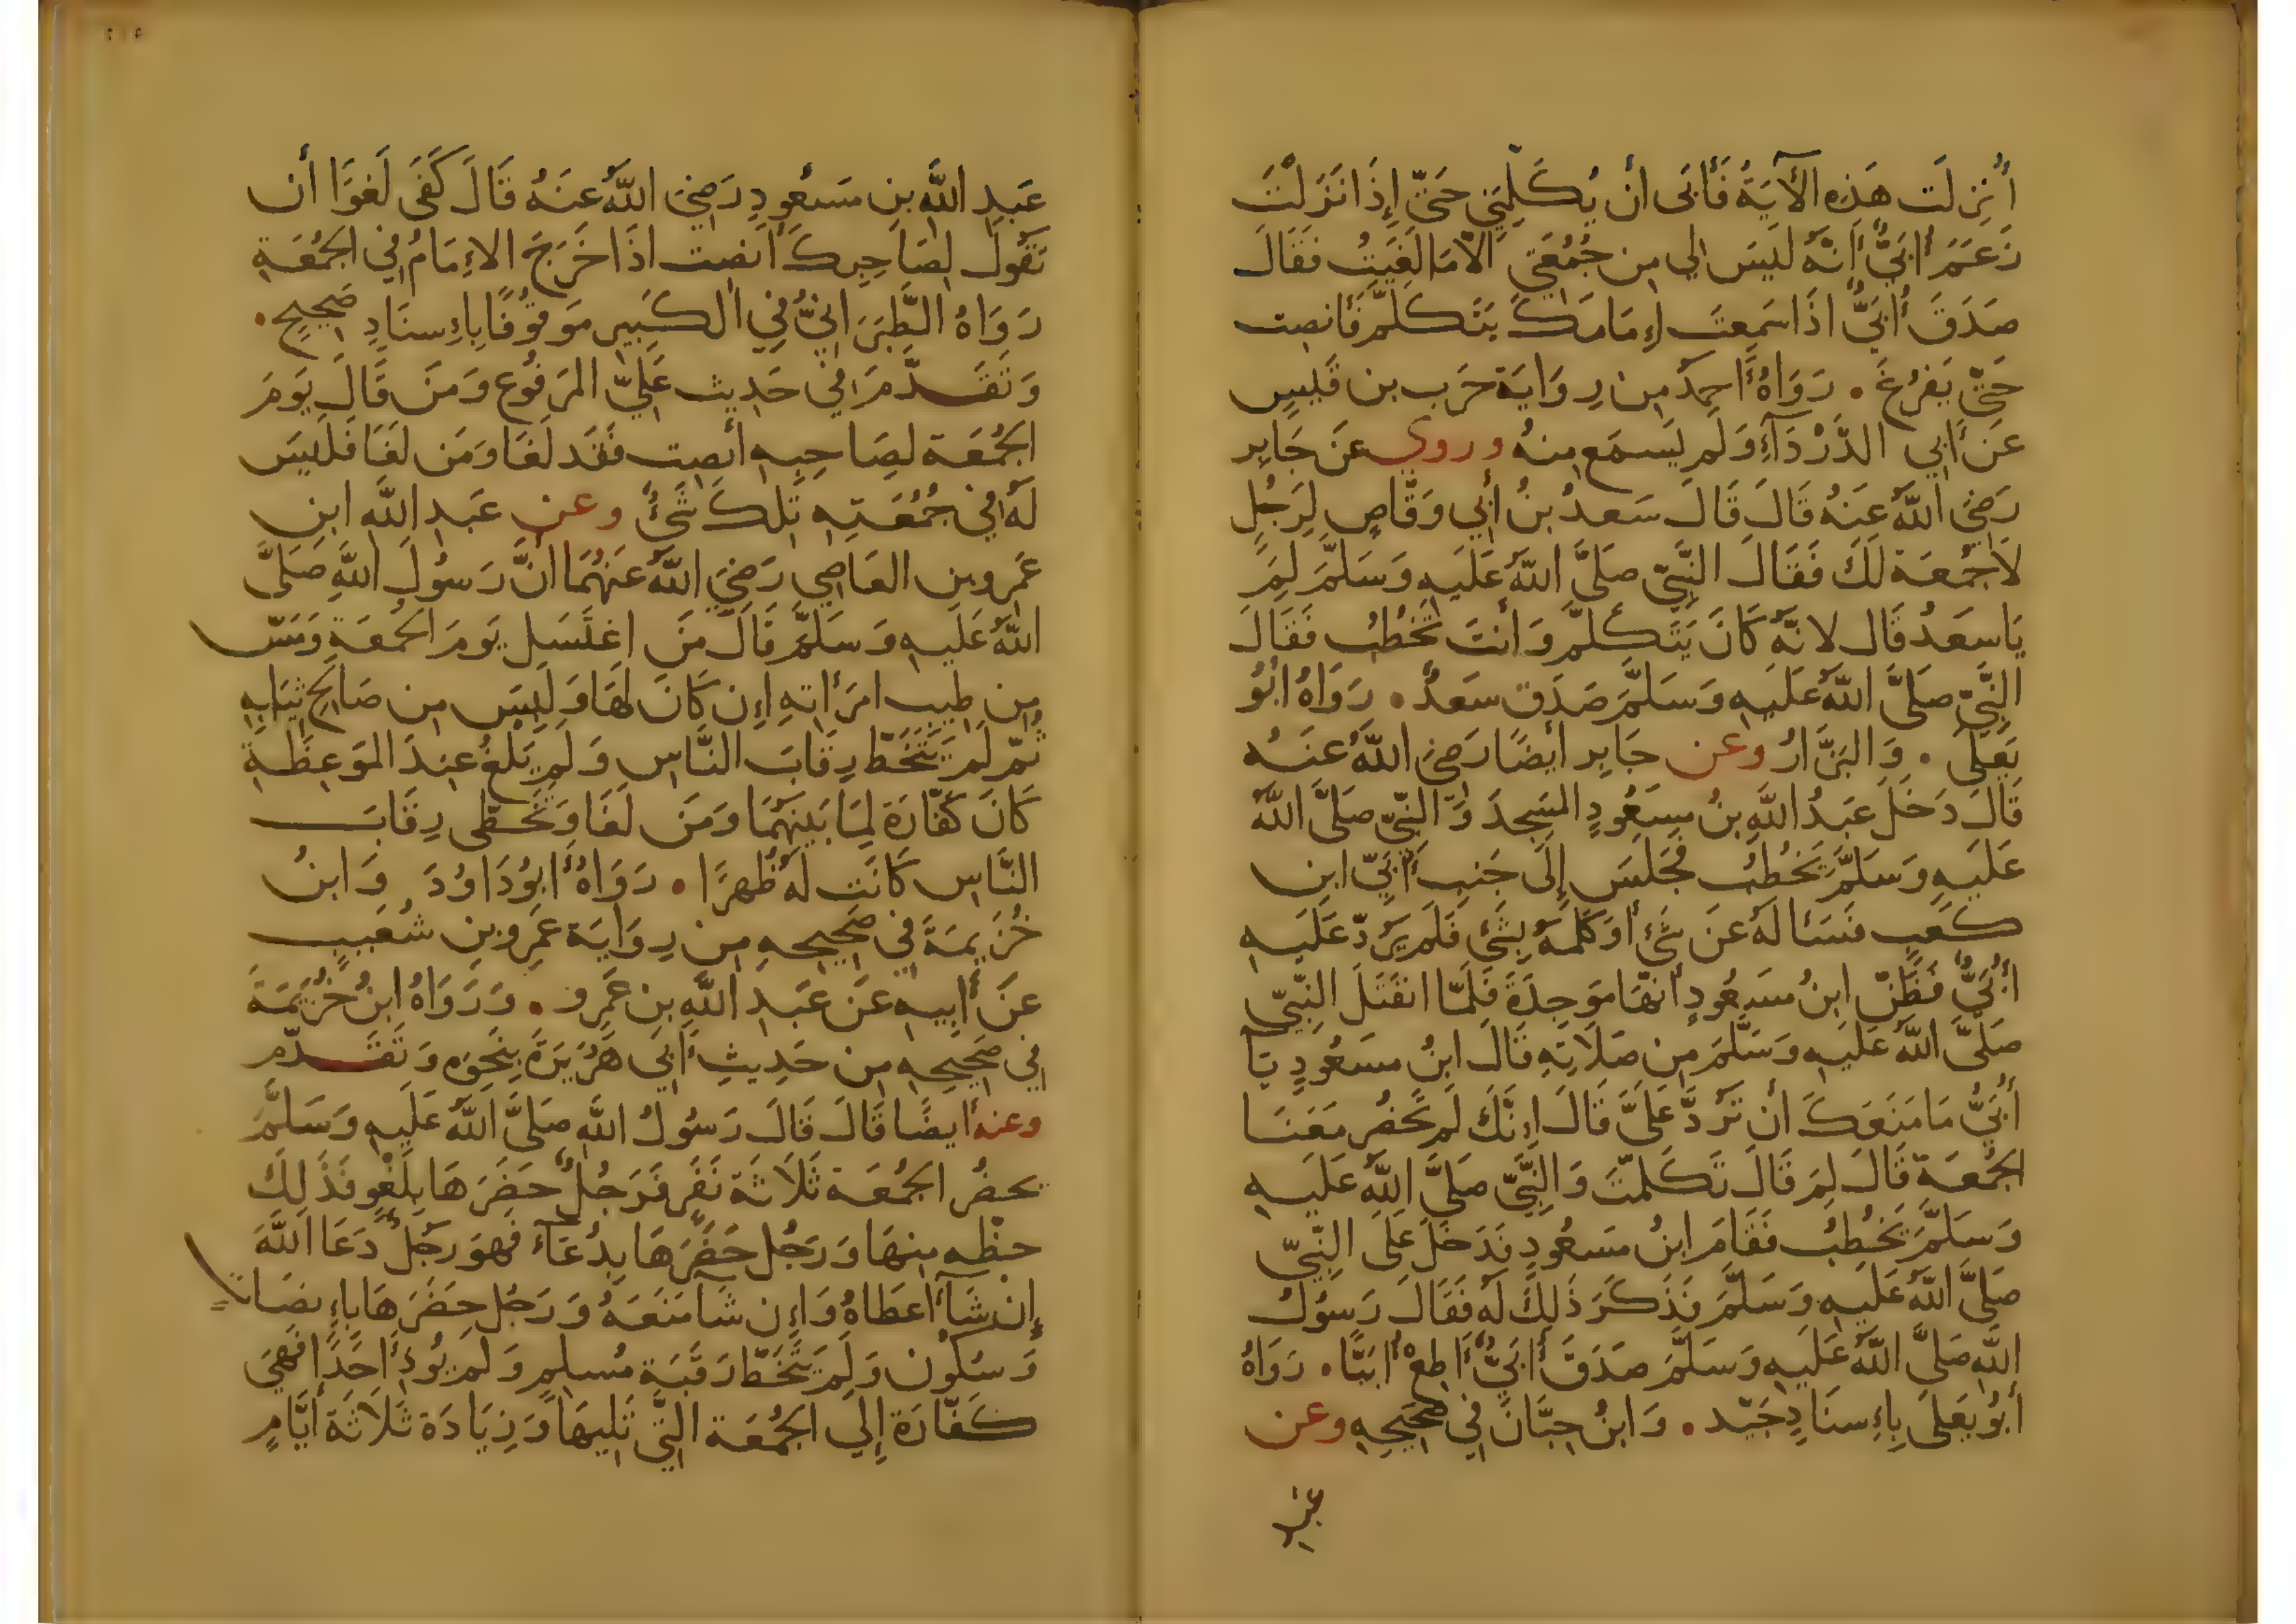 أُنزِلَت هَذِهِ الآيَةُ فَأَبَى أن يُكَلِّمَنِي حَتَّى إِذَا نَزَلْتَ
زَعَمَ أُبَيٌّ أَنَّهُ لَيسَ لِي مِن جُمُعَتِي الا مَا لَغَيتُ فَقَالَ
صَدَقَ أُبَيٌّ اذَا سَمِعتَ إِمَامَكَ يَتَكَلَّم فَأَنصِت
حَتَّى يَفرُغَ . رَوَاهُ أَحمدُ مِن رِوَايَة حَرب بن قَيسٍ
عَن أَبِي الدَّرْدَآءِ وَلَم يَسمَع مِنهُ وروي عَن جَابِر
رَضِيَ اللَّهُ عَنهُ قَالَ قَالَ سَعدُ بنُ أَبِي وَقَّاصٍ لِرَجُلٍ
لَا جُمُعَة لَكَ فَقَالَ النَّبِيّ صَلَّى اللَّهُ عَلَيهِ وَسَلَّمَ لِمَ
يَا سَعدُ قَال لانَّهُ كَانَ يَتَكَلَّمُ وَأَنتَ تَخطُبُ فَقَالَ
النَّبِيّ صَلَّى اللَّهُ عَلَيهِ وَسَلَّمَ صَدَق سَعدٌ . رَوَاهُ ابُو
يَعلَى . وَالبَزَّارُ وعن جَابِر أيضًا رَضِيَ اللَّهُ عَنهُ
قَالَ دَخَلَ عَبدُ اللَّهِ بنُ مسعُودٍ المَسجِدَ وَالنَّبِيّ صَلَّى اللَّهُ
عَلَيهِ وَسَلَّمَ يَخطُبُ فَجَلَسَ إِلَى جَنبِ أُبَيّ ابن
كَعبٍ فَسَأَلَهُ عَن شَئ أَو كَلَّمَهُ بِشَئ فَلَم يَرُدّ عَلَيهِ
أُبَيٌّ فَظَنّ ابنُ مَسعُودٍ أَنّهَا مَوجِدَةً فَلَمَّا انفَتَلَ النَّبِيّ
صَلَّى اللَّهُ عَلَيهِ وَسَلَّمَ مِن صَلَاتِهِ قَالَ ابنُ مسعُودٍ يَآ
أُبَيُّ مَا مَنَعَكَ أَن تَرُدَّ عَلَيَّ قَالَ إِنَّكَ لَم تَحضُر مَعَنَا
الجُمُعَة قَالَ لِمَ قَالَ تَكَلّمتَ وَالنَّبِيّ صَلَّى اللَّهُ عَلَيهِ
وَسَلَّمَ يَخطُبُ فَقَامَ ابنُ مَسعُودٍ فَدَخَلَ عَلَى النَّبِيّ
صَلَّى اللَّهُ عَلَيهِ وَسَلَّمَ فَذَكَرَ ذَلِكَ لَهُ فَقَالَ رَسُولُ
اللَّهِ صَلَّى اللَّهُ عَلَيهِ وَسَلَّمَ صَدَقَ أُبَيٌّ أَطِعْ أُبَيًّا . رَوَاهُ
أَبُو يَعلَى بِإِسنَادٍ جَيّد . وَابنُ حِبَّانَ فِي صَحِيحِهِ وعن
عبد
عَبدِ اللَّهِ بن مَسعُودٍ رَضِيَ اللَّهُ عَنهُ قَالَ كَفَى لَغوًا أن
تَقُولَ لِصَاحِبِكَ أنصِت اذَا خَرَجَ الإِمَامُ فِي الجُمُعَةِ
رَوَاهُ الطَّبَرَانِيُّ فِي الكَبِير مَوقُوفًا بِإِسنَادٍ صَحِيحٍ .
وَتَقَدَّمَ فِي حَدِيث عَلِيّ المَرفُوع وَمَن قَالَ يَومَ
الجُمُعَة لِصَاحِبِهِ أنصِت فَقَد لَغَا وَمَن لَغَا فَلَيسَ
لَهُ فِي جُمُعَتِهِ تِلكَ شَئٌ وعن عَبدِ اللَّهِ ابن
عَمرو بن العَاصِي رَضِيَ اللَّهُ عَنهُمَا أَنَّ رَسُولَ اللَّهِ صَلَّى
اللَّهُ عَلَيهِ وَسَلَّمَ قَالَ مَن اغتَسَل يَومَ الجُمُعَةِ وَمَسّ
مِن طِيبِ امرَأَتِهِ إِن كَانَ لَهَا وَلَبِسَ مِن صَالِحِ ثِيَابِهِ
ثُمّ لَم يَتَخَطّ رِقَابَ النَّاس وَلَم يَلغُ عِندَ المَوعِظَةِ
كَانَ كَفّارَة لِمَا بَينَهُمَا وَمَن لَغَا وَتَخَطّى رِقَابَ
النَّاس كَانَت لَهُ ظُهرًا . رَوَاهُ أَبُو دَاوُدَ وَابنُ
خُزَيمَةَ فِي صَحِيحِهِ مِن رِوَايَة عَمرو بن شُعَيبٍ
عَن أَبِيهِ عَن عَبدِ اللَّهِ بن عَمرو . وَرَوَاهُ ابنُ خُزَيمَةَ
فِي صَحِيحِهِ مِن حَدِيثِ أَبِي هُرَيرَةَ بِنَحوِهِ وَتَقَدَّم
وعنه أيضًا قَالَ قَالَ رَسُولُ اللَّهِ صَلَّى اللَّهُ عَلَيهِ وَسَلَّمَ
يحضُر الجُمُعَة ثَلَاثَة نَفَرٍ فَرَجُلٌ حَضَرَهَا بِلَغْوٍ فَذَلِكَ
حظّه مِنهَا وَرَجُل حَضَرَهَا بِدُعَآء فَهوَ رَجُلٌ دَعَا اللَّهَ
إِن شَآءَ أَعطَاهُ وَإِن شَا مَنَعَهُ وَرَجُل حَضَرَهَا بِإِنصَاتٍ
وَسُكُون وَلَم يَتَخَطّ رَقَبَةِ مُسلِمٍ وَلَم يُوذِ أَحَدًا فَهِيَ
كَفّارَة إِلَى الجُمُعَة الَّتِي تَلِيهَا وَزِيَادَة ثَلَاثَة أَيَّامٍ